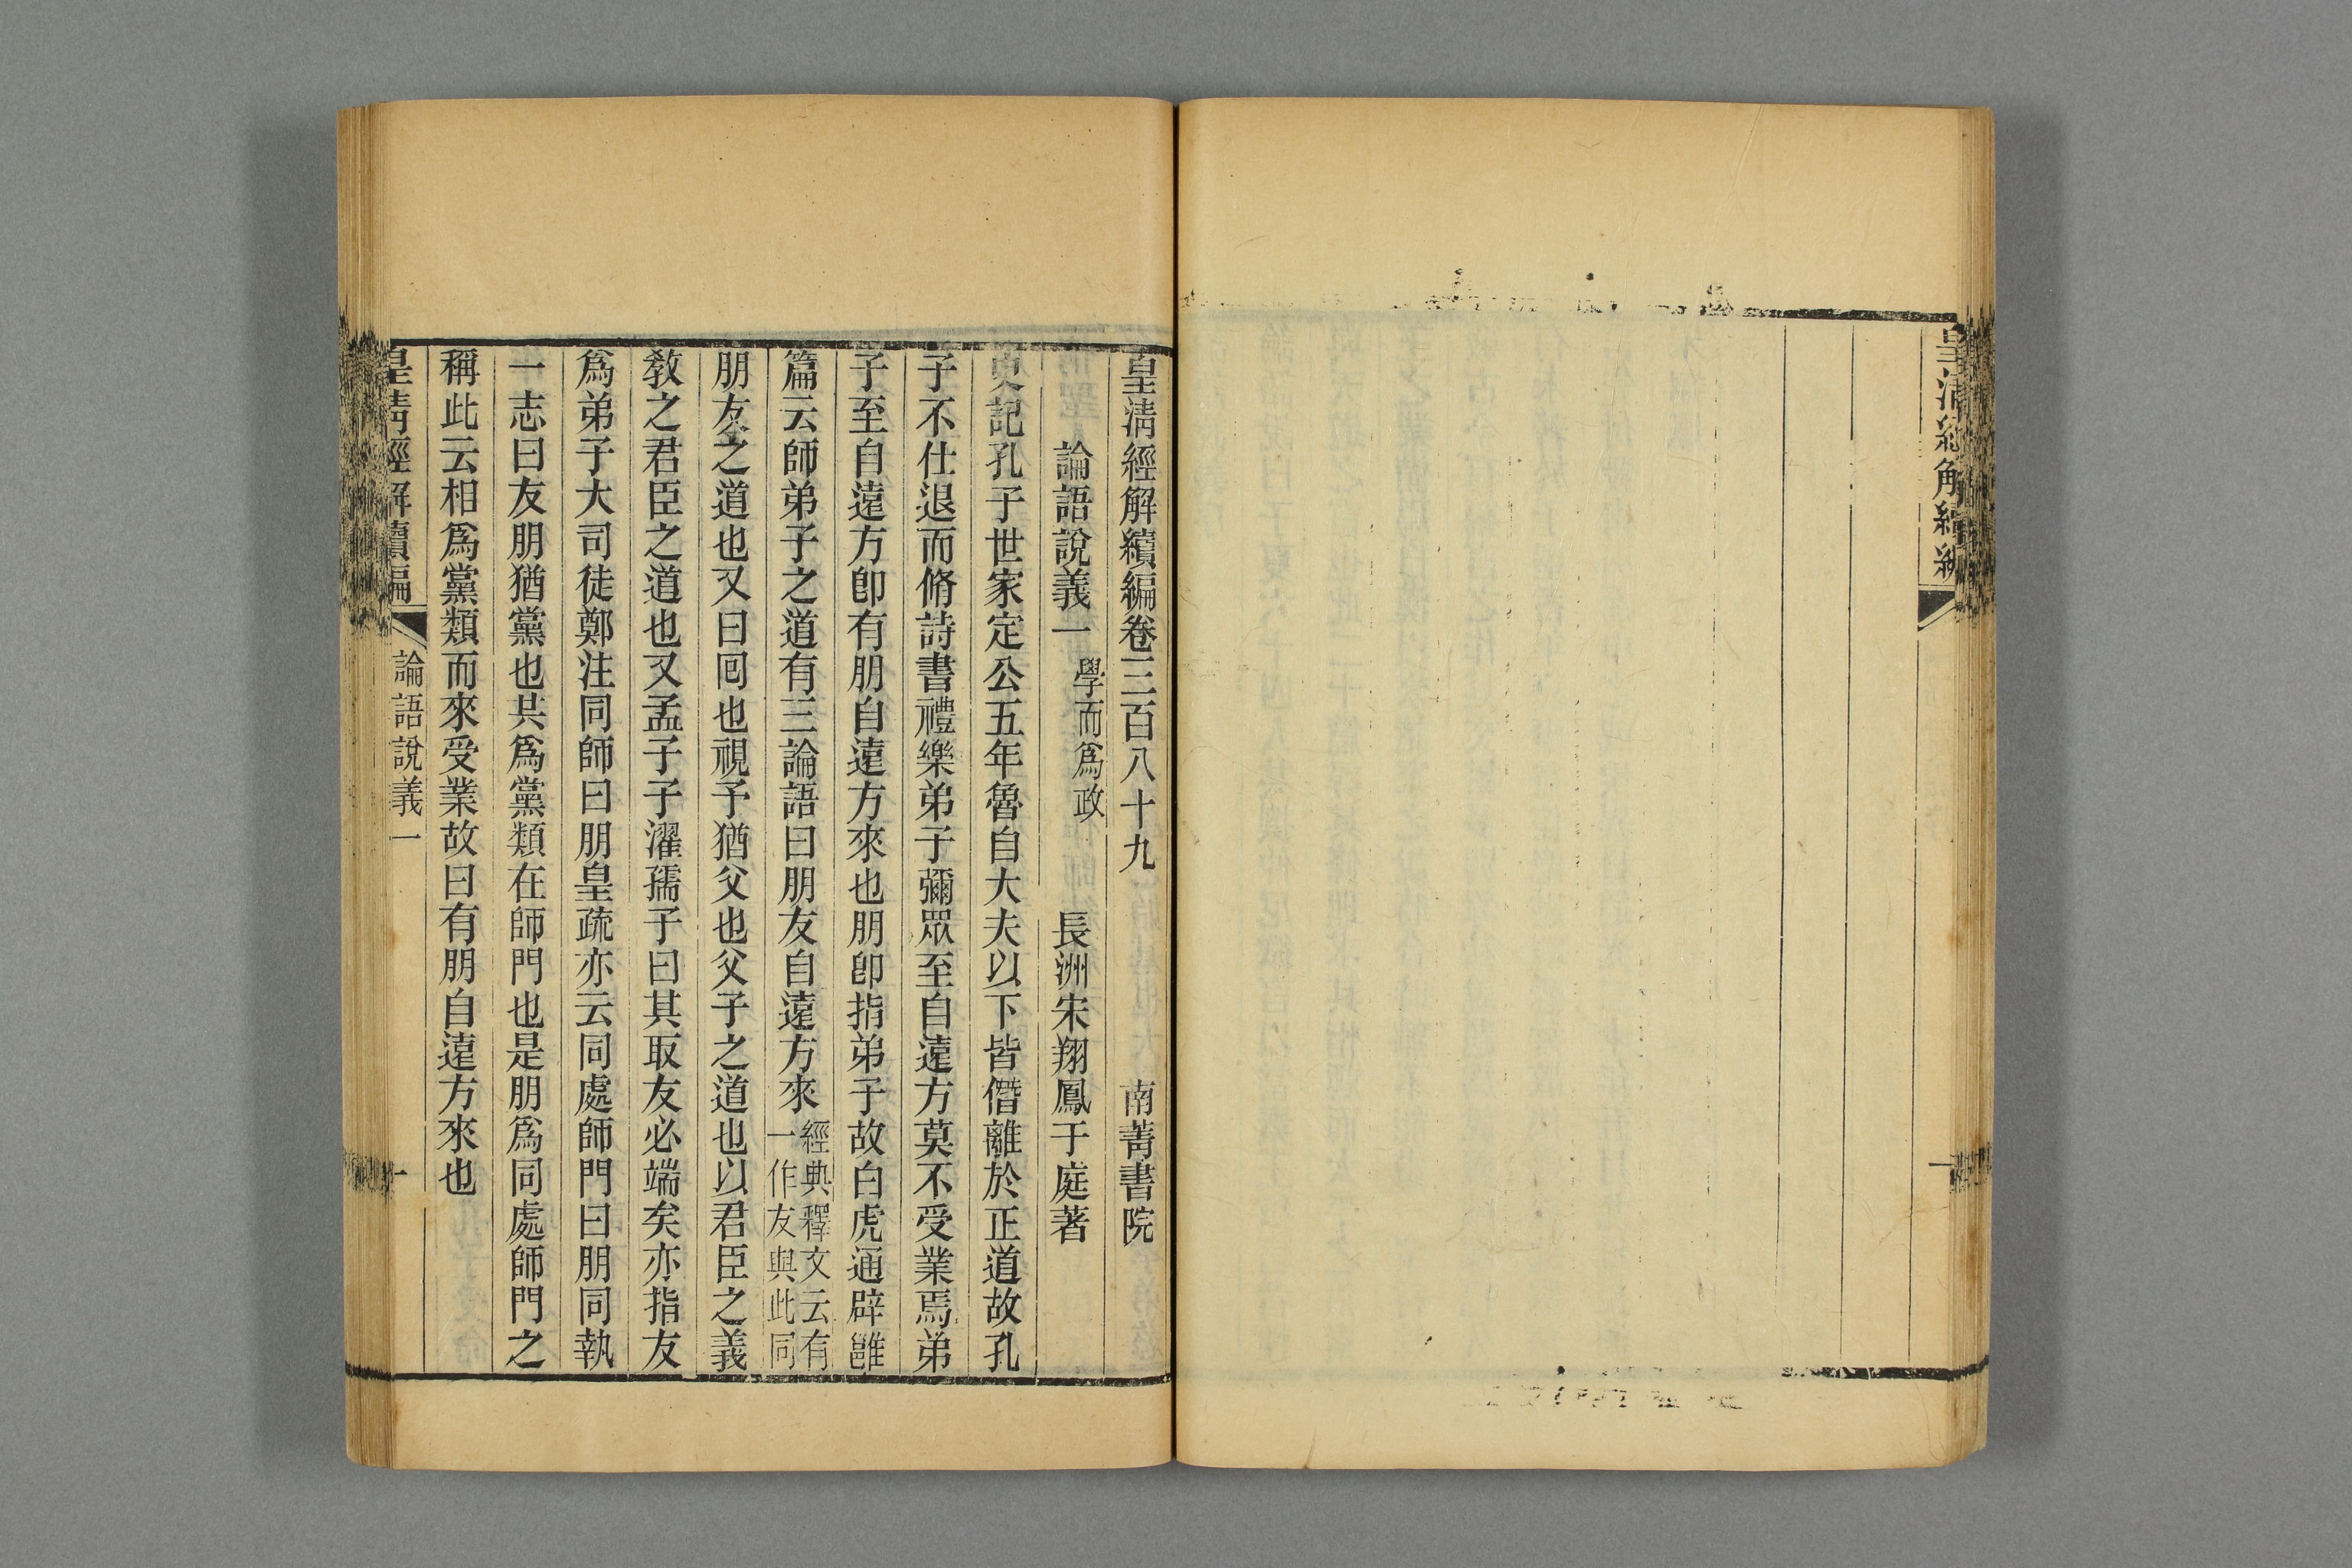 皇清經解續編
一
皇清經解續編卷三百八十九 南菁書院
論語說義一 學而爲政 長洲宋翔鳳于庭著
史記孔子世家定公五年魯自大夫以下皆僭離於正道故孔
子不仕退而脩詩書禮樂弟子彌眾至自遠方莫不受業焉弟
子至自遠方卽有朋自遠方來也朋卽指弟子故白虎通辟雝
篇云師弟子之道有三論語曰朋友自遠方來
經典釋文云有
一作友與此同
朋友之道也又曰囘也視予猶父也父子之道也以君臣之義
敎之君臣之道也又孟子子濯孺子曰其取友必端矣亦指友
爲弟子大司徒鄭注同師曰朋皇疏亦云同處師門曰朋同執
一志曰友朋猶黨也共爲黨類在師門也是朋爲同處師門之
稱此云相爲黨類而來受業故曰有朋自遠方來也
皇淸經解續編
論語說義一
一